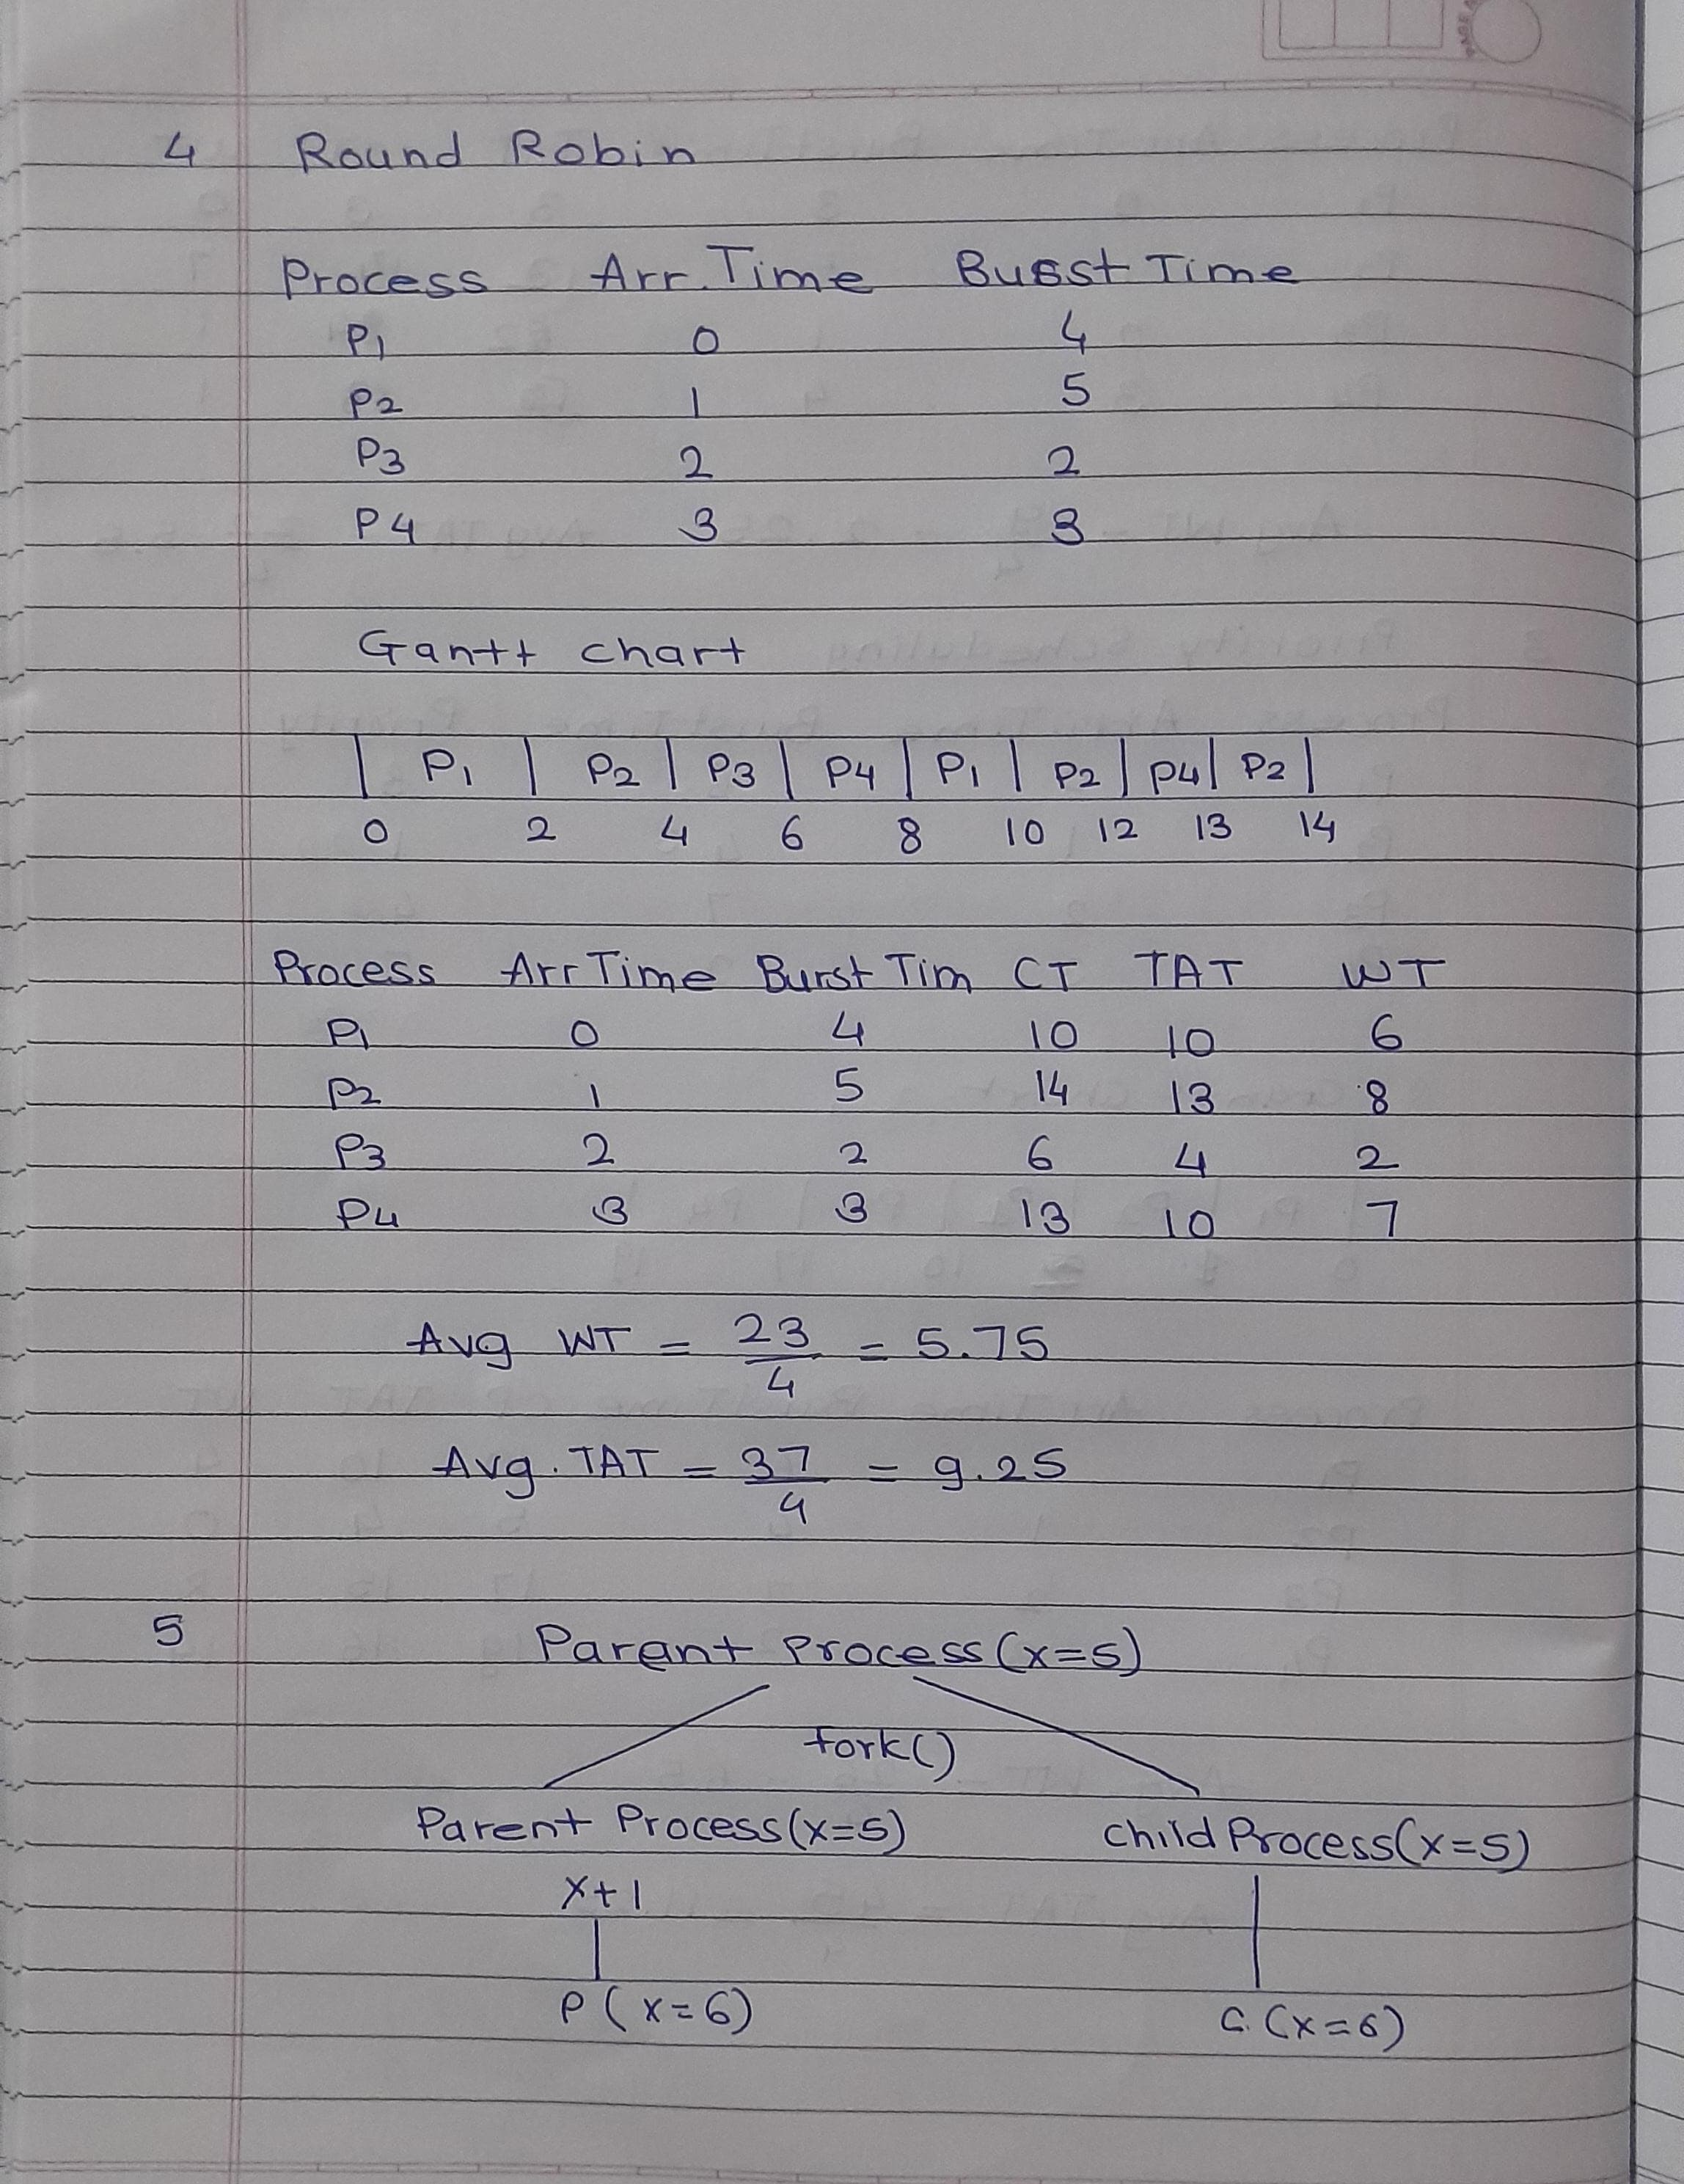 4 Round Robin
Process Arr. Time Busst Time
P1 0 4
P2 1 5
P3 2 2
P4 3 3
Gantt chart
| P1 | P2 | P3 | P4 | P1 | P2 | P4 | P2 |
0 2 4 6 8 10 12 13 14
Process Arr Time Burst Tim CT TAT WT
P1 0 4 10 10 6
P2 1 5 14 13 8
P3 2 2 6 4 2
P4 3 3 13 10 7
Avg WT = 23/4 = 5.75
Avg. TAT = 37/4 = 9.25
5 Parent Process (x=5)
fork()
Parent Process (x=5) child Process (x=5)
x+1
P (x=6) C. (x=6)